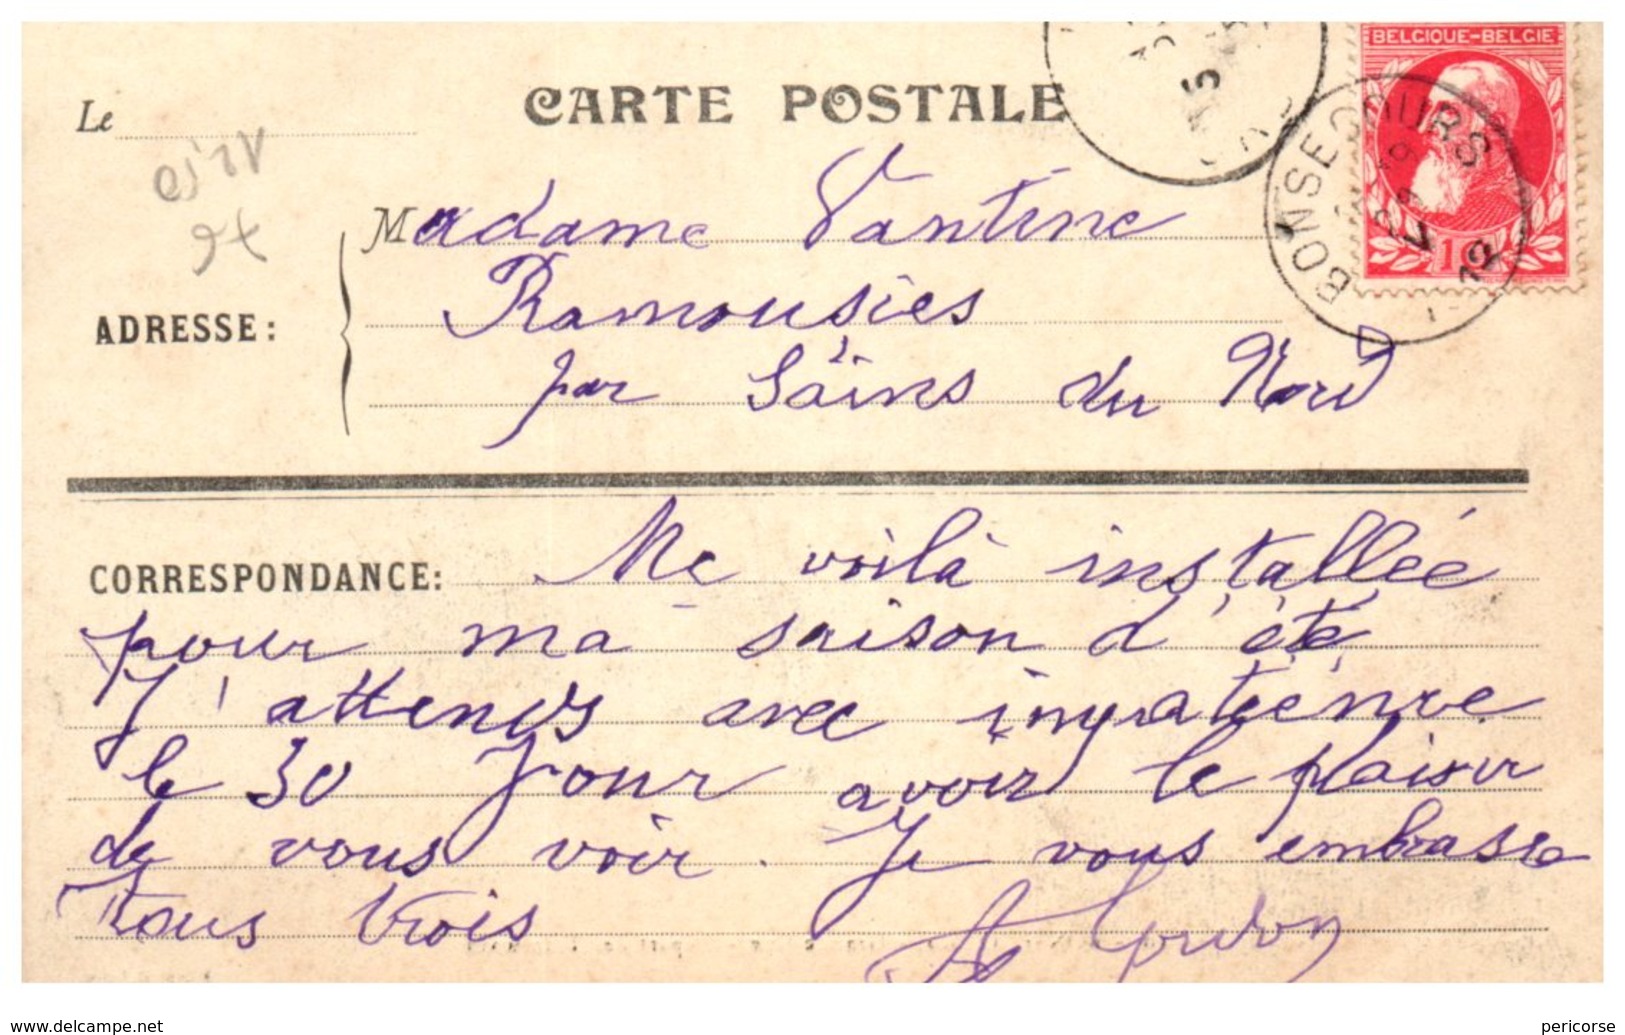 BELGIQUE-BELGIE
CARTE POSTALE
Le
BONSECOURS
12
10
Madame Vantine
Ramousies
ADRESSE:
par Sains du Nord
CORRESPONDANCE: Me voilà installée
pour ma saison d'été
J'attends avec impatience
le 30 pour avoir le plaisir
de vous voir. Je vous embrasse
tous trois
www.delcampe.net
pericorse